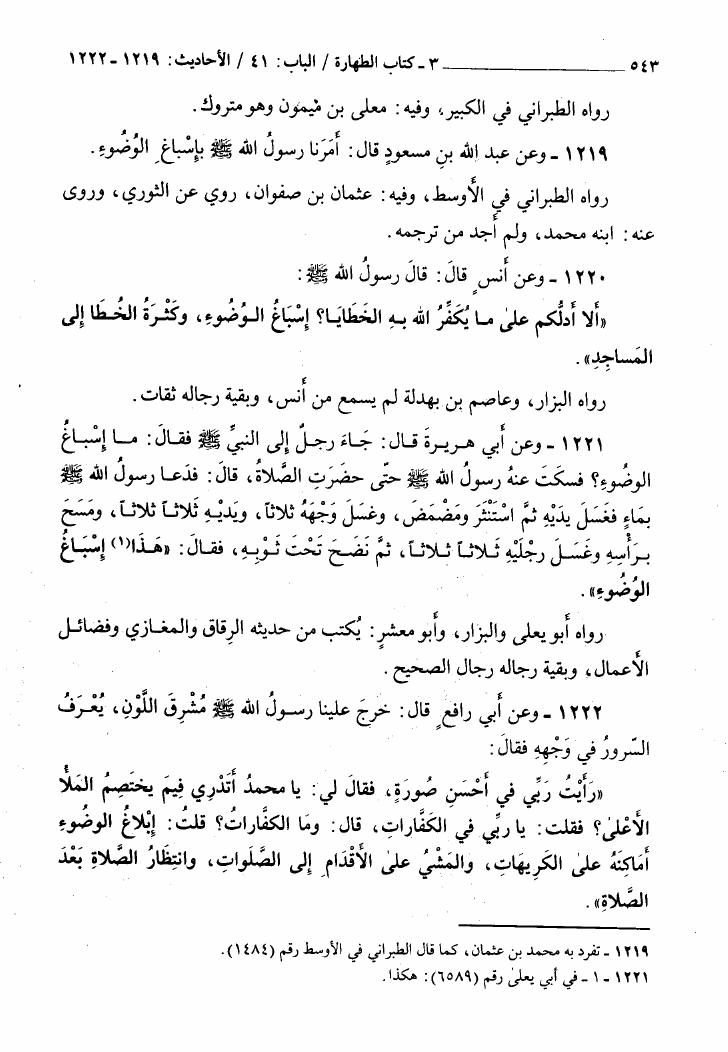 ٥٤٣ ــــــــــــــــ ٣ ـ كتاب الطهارة / الباب: ٤١ / الأحاديث: ١٢١٩ ـ ١٢٢٢
رواه الطبراني في الكبير، وفيه: معلى بن ميمون وهو متروك.
١٢١٩ ـ وعن عبد الله بنِ مسعودٍ قال: أَمَرَنا رسولُ الله ﷺ بِإِسْبَاغِ الوُضُوءِ.
رواه الطبراني في الأوسط، وفيه: عثمان بن صفوان، روي عن الثوري، وروى
عنه: ابنه محمد، ولم أجد من ترجمه.
١٢٢٠ ـ وعن أنسٍ قالَ: قالَ رسولُ الله ﷺ:
«أَلا أَدلُّكم على ما يُكَفِّرُ الله بِهِ الخَطَايَا؟ إِسْبَاغُ الوُضُوءِ، وكَثْرَةُ الخُطَا إِلى
المَساجِدِ».
رواه البزار، وعاصم بن بهدلة لم يسمع من أنس، وبقية رجاله ثقات.
١٢٢١ ـ وعن أبي هريرةَ قال: جَاءَ رجلٌ إلى النبيِّ ﷺ فقالَ: ما إِسْبَاغُ
الوضُوءِ؟ فسكتَ عنهُ رسولُ الله ﷺ حتّى حضَرَتِ الصَّلاةُ، قالَ: فدَعا رسولُ الله ﷺ
بماءٍ فغسَلَ يدَيْهِ ثمَّ اسْتَنْثَرَ ومَضْمَضَ، وغسَلَ وَجْهَهُ ثلاثاً، ويَدَيْهِ ثَلاثاً ثَلاثاً، ومَسَحَ
بِرَأْسِهِ وغَسَلَ رِجْلَيْهِ ثَلاثاً ثَلاثاً، ثمَّ نَضَحَ تَحْتَ ثَوْبِهِ، فقالَ: «هَذَا(١) إِسْبَاغُ
الوُضُوءِ».
رواه أبو يعلى والبزار، وأبو معشرٍ: يُكتب من حديثه الرقاق والمغازي وفضائل
الأعمال، وبقية رجاله رجال الصحيح.
١٢٢٢ ـ وعن أبي رافعٍ قال: خرجَ علينا رسولُ الله ﷺ مُشْرِقَ اللَّوْنِ، يُعْرَفُ
السّرورُ في وَجْهِهِ فقالَ:
«رَأَيْتُ رَبِّي في أَحْسَنِ صُورَةٍ، فقالَ لي: يا محمدُ أَتَدْرِي فِيمَ يختَصِمُ المَلأُ
الأَعْلىٰ؟ فقلت: يا ربِّي في الكَفَّاراتِ، قال: ومَا الكفَّاراتُ؟ قلتُ: إِبْلاغُ الوضُوءِ
أَمَاكِنَهُ على الكَرِيهَاتِ، والمَشْيُ على الأَقْدَامِ إِلى الصَّلَواتِ، وانتِظَارُ الصَّلاةِ بَعْدَ
الصَّلاةِ».
١٢١٩ ـ تفرد به محمد بن عثمان، كما قال الطبراني في الأوسط رقم (١٤٨٤).
١٢٢١ ـ ١ ـ في أبي يعلىٰ رقم (٦٥٨٩): هكذا.